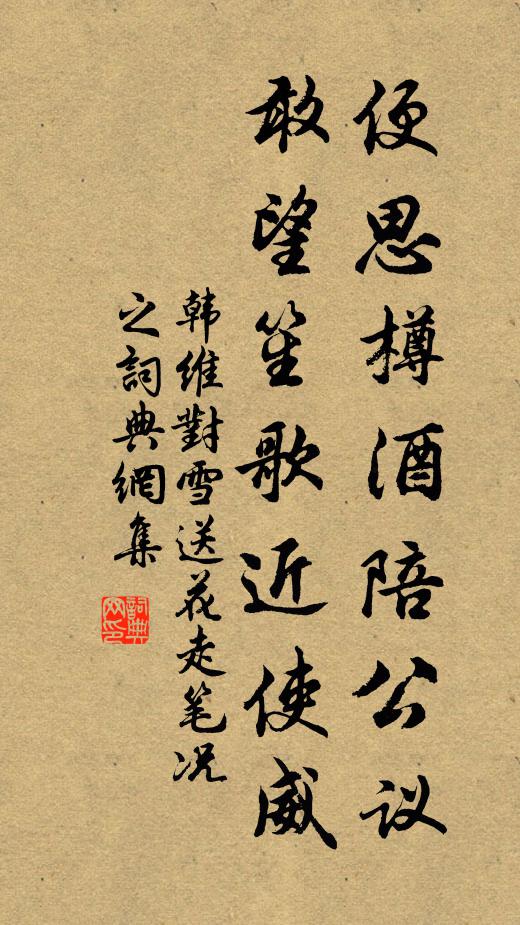 便思樽酒陪公议
敢望笙歌近使威
韩维對雪送花走笔况
之詞典網集
詞典
网印